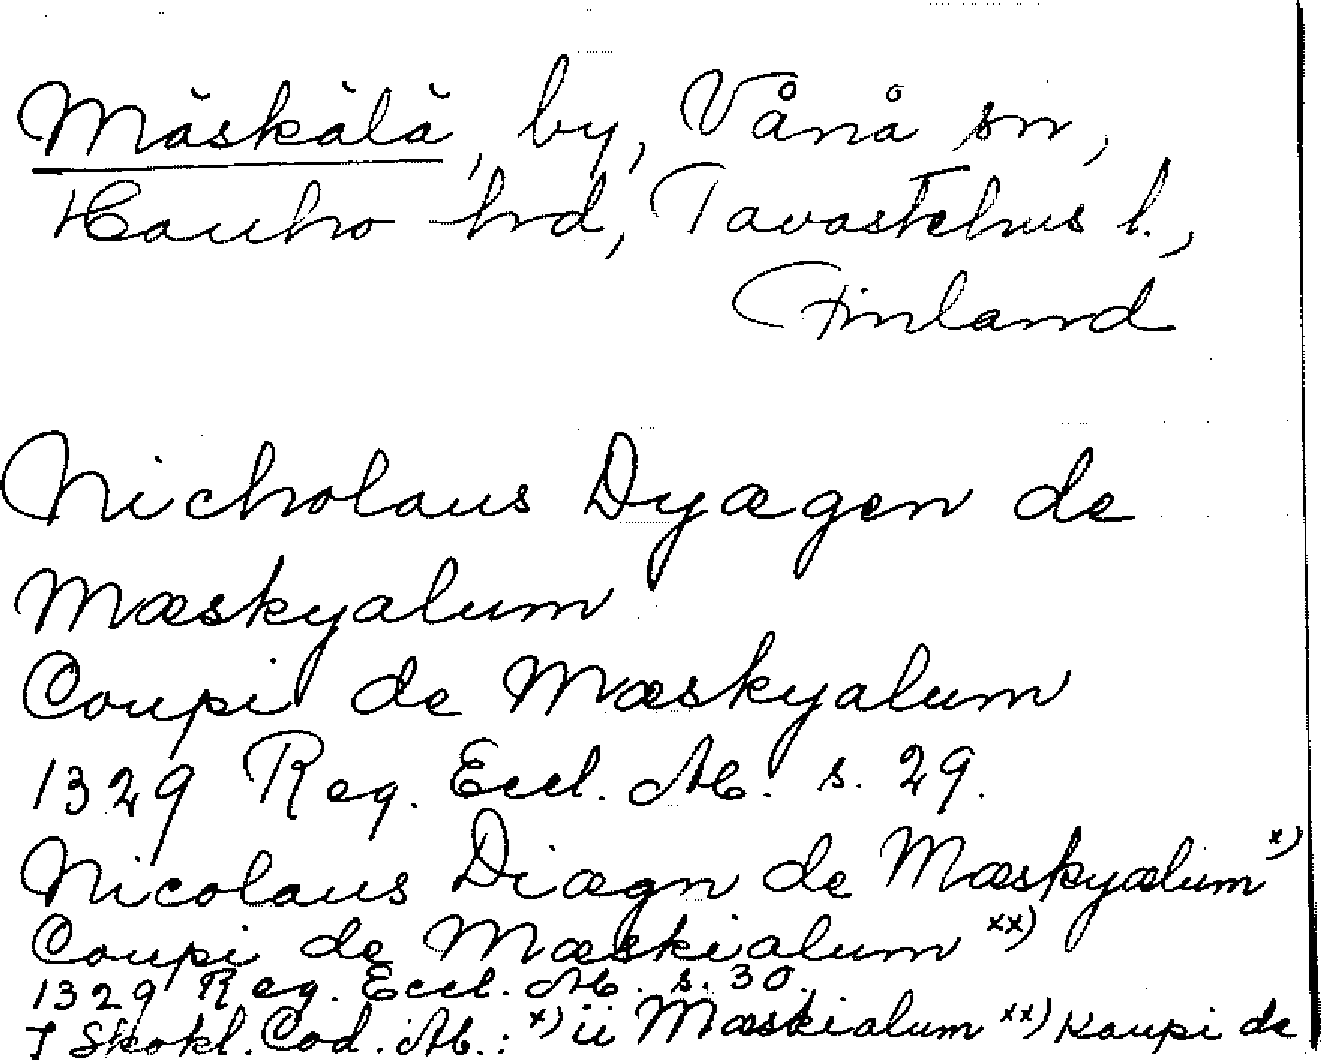 Mäskälä, by, Vånå sn,
Hauho hrd, Tavastehus l.,
Finland
Nicholaus Dyægen de
Mæskyalum
Coupi de Mæskyalum
1329 Reg. Eccl. Ab. s. 29.
Nicolaus Diægn de Mæskyælum x)
Coupi de Mæskialum xx)
1329 Reg. Eccl. Ab. s. 30.
I Skokl. Cod. Ab.: x) ii Mæskialum xx) Kaupi de